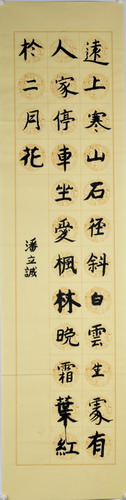 遠上寒山石径斜白雲生處有
人家停車坐愛楓林晚霜葉紅
於二月花
潘立誠